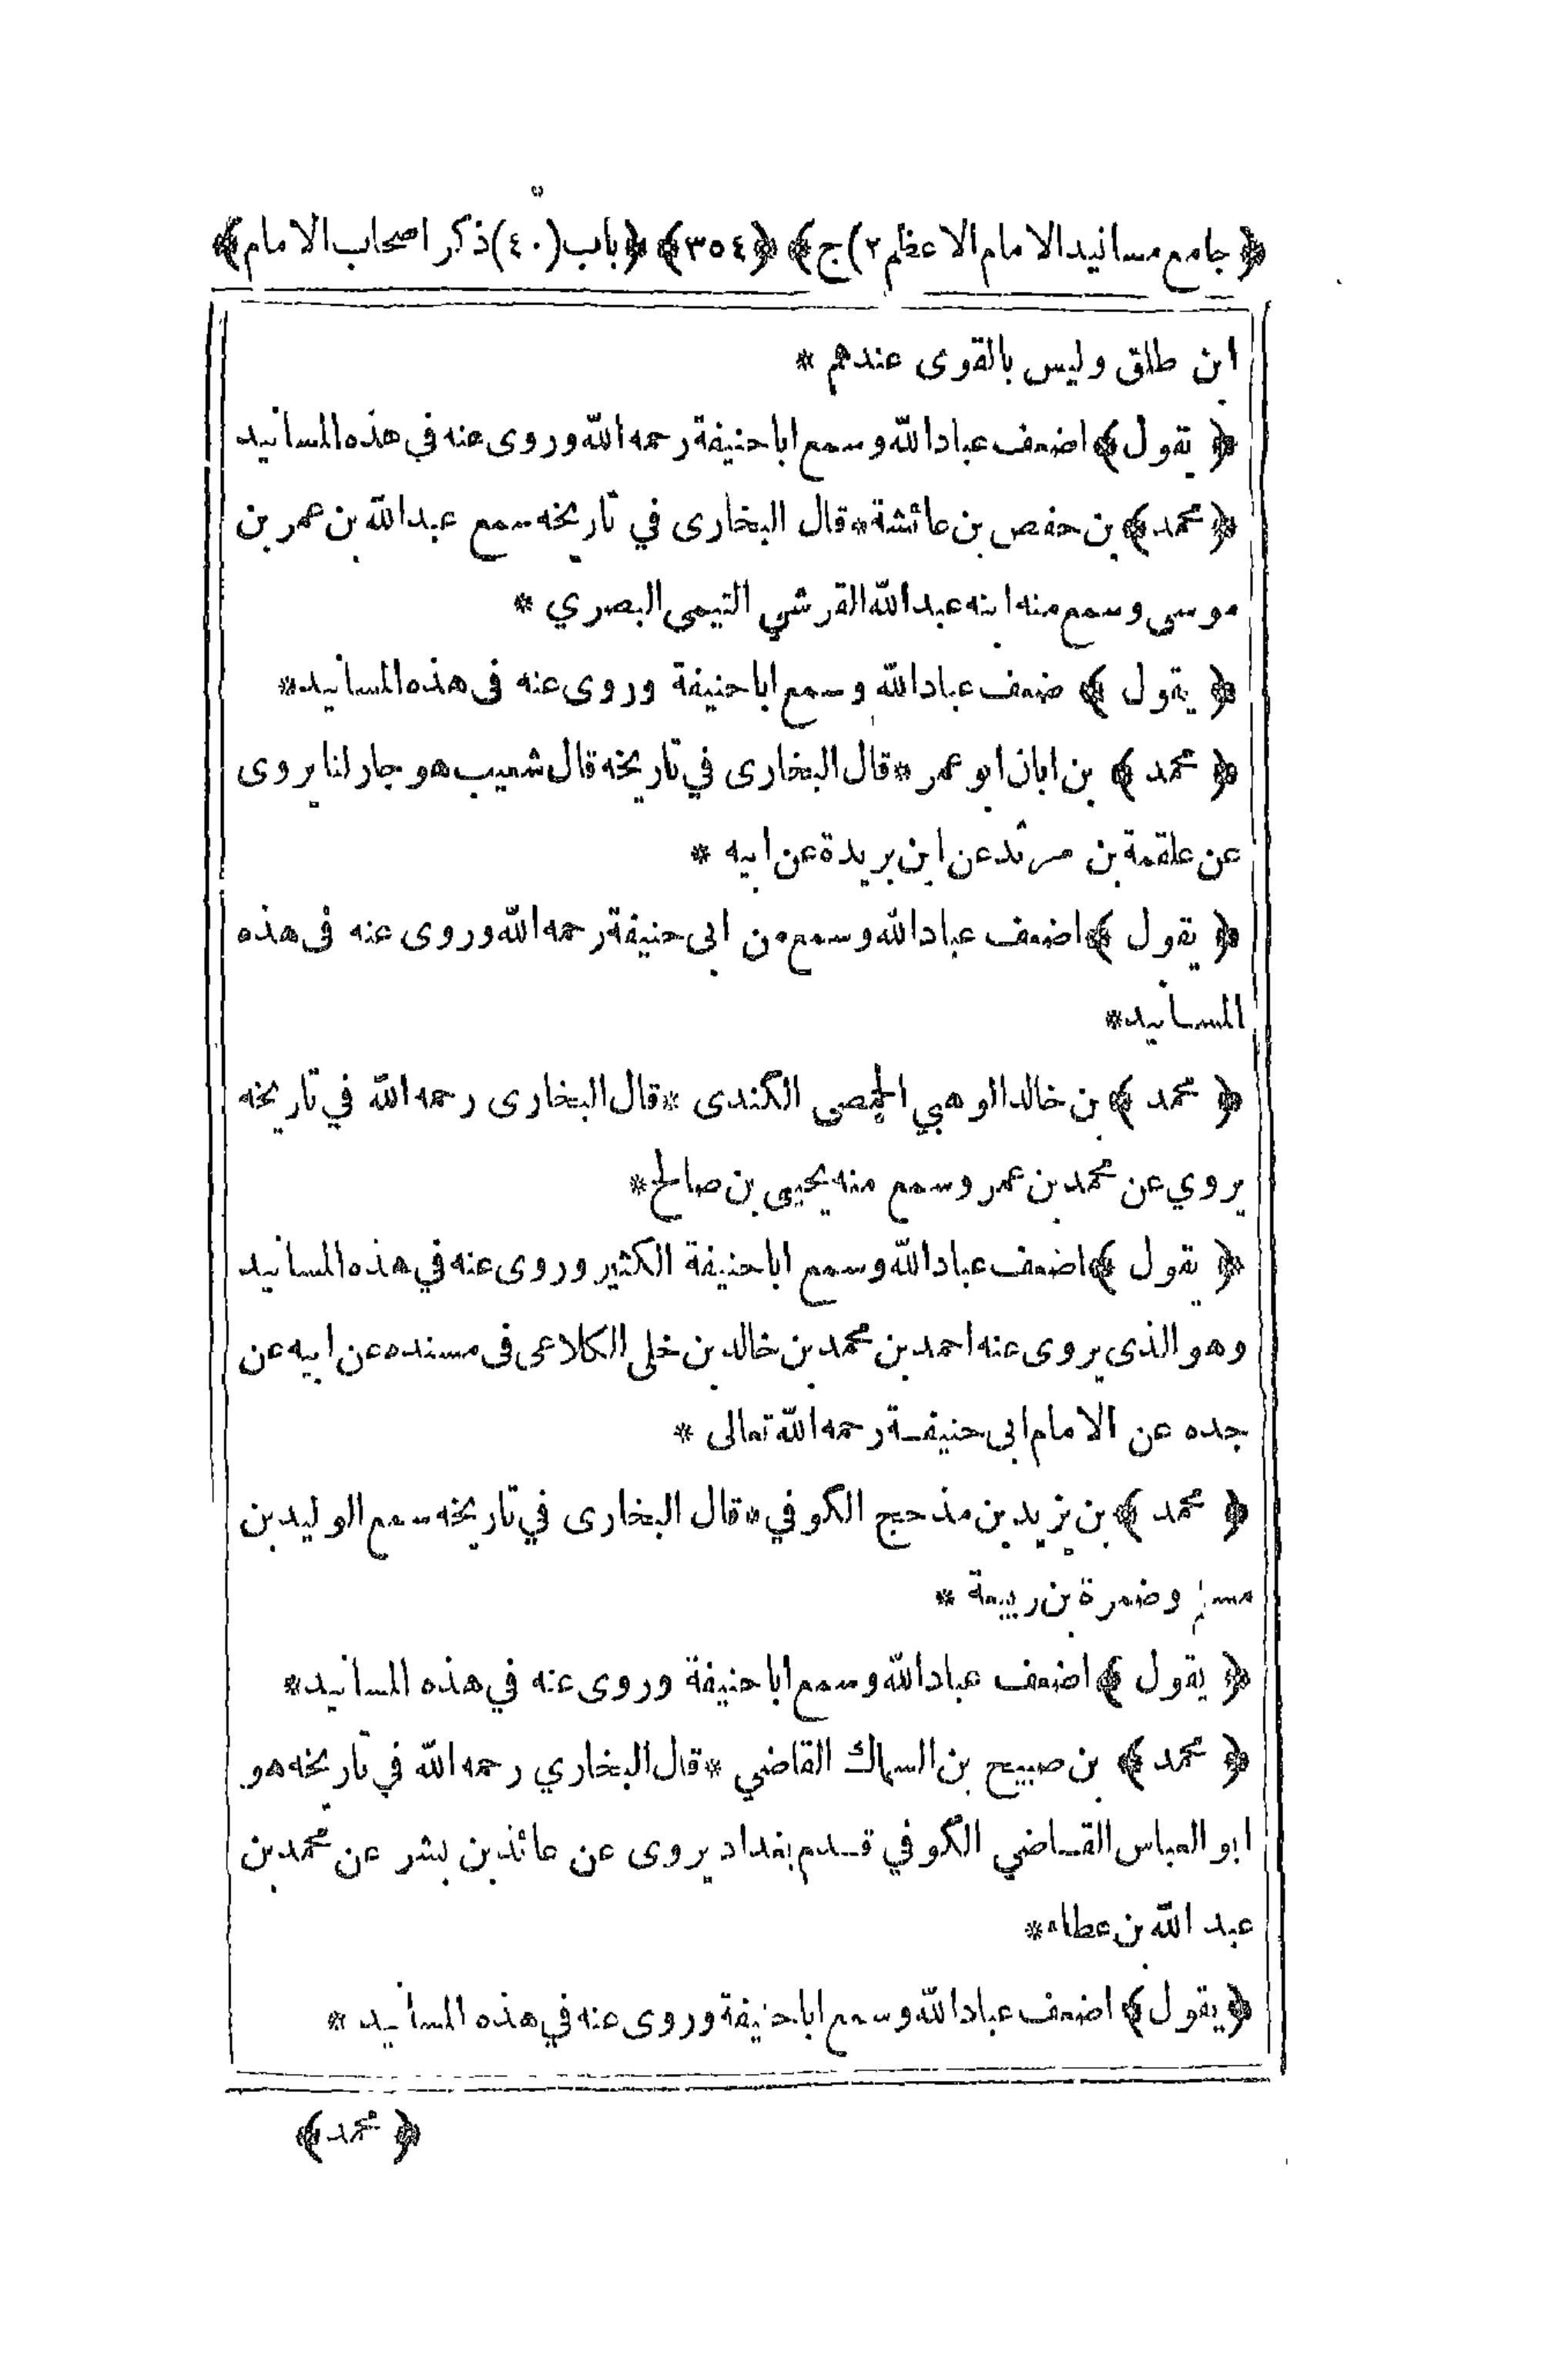 ﴿ جامع مسانيد الامام الاعظم ٢) ج﴾ ﴿٣٥٤﴾ ﴿باب (٤٠) ذكر اصحاب الامام﴾
ابن طلق وليس بالقوى عندهم *
﴿ يقول ﴾ اضعف عباد الله وسمع ابا حنيفة رحمه الله وروى عنه في هذه المسانيد
﴿ محمد ﴾ بن حفص بن عائشة * قال البخارى في تاريخه سمع عبد الله بن عمر بن
موسى وسمع منه ابنه عبد الله القرشي التيمى البصري *
﴿ يقول ﴾ ضعف عباد الله وسمع ابا حنيفة وروى عنه فى هذه المسانيد *
﴿ محمد ﴾ بن ابان ابو عمر * قال البخارى في تاريخه قال شعيب هو جار لنا يروى
عن علقمة بن مرثد عن ابن بريدة عن ابيه *
﴿ يقول ﴾ اضعف عباد الله وسمع من ابى حنيفة رحمه الله وروى عنه فى هذه
المسانيد *
﴿ محمد ﴾ بن خالد الوهبي الحمصى الكندى * قال البخارى رحمه الله في تاريخه
يروي عن محمد بن عمر وسمع منه يحيى بن صالح *
﴿ يقول ﴾ اضعف عباد الله وسمع ابا حنيفة الكثير وروى عنه في هذه المسانيد
وهو الذى يروى عنه احمد بن محمد بن خالد بن خلى الكلاعى فى مسنده عن ابيه عن
جده عن الامام ابى حنيفة رحمه الله تعالى *
﴿ محمد ﴾ بن يزيد بن مذحج الكوفي * قال البخارى في تاريخه سمع الوليد بن
مسلم وضمرة بن ربيعة *
﴿ يقول ﴾ اضعف عباد الله وسمع ابا حنيفة وروى عنه في هذه المسانيد *
﴿ محمد ﴾ بن صبيح بن السماك القاضي * قال البخاري رحمه الله في تاريخه هو
ابو العباس القاضي الكوفي قدم بغداد يروى عن عائذ بن بشر عن محمد بن
عبد الله بن عطاء *
﴿ يقول ﴾ اضعف عباد الله وسمع ابا حنيفة وروى عنه في هذه المسانيد *
﴿ محمد ﴾